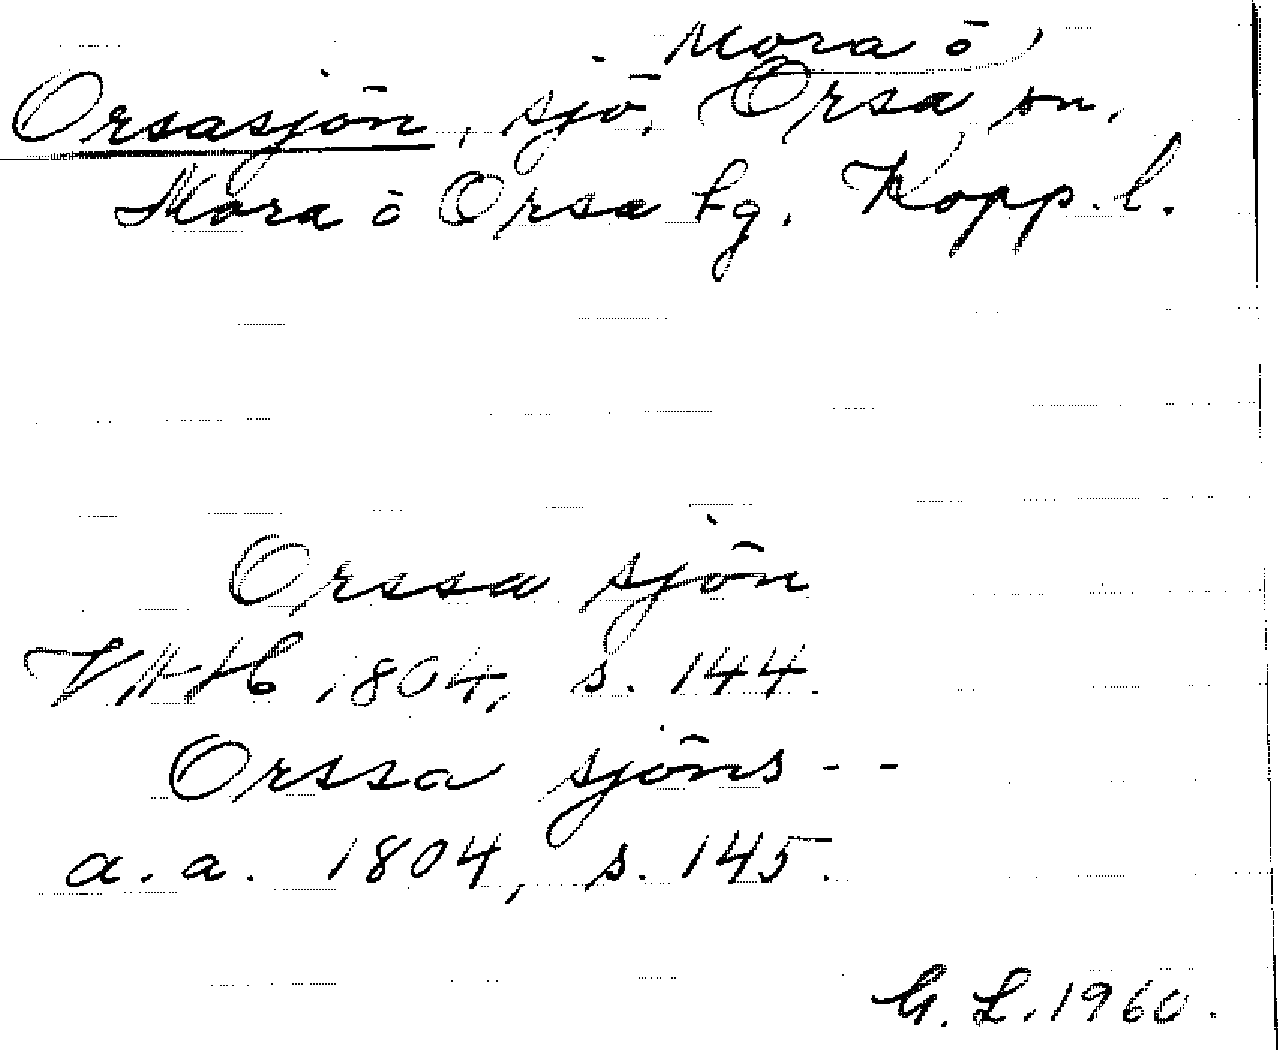 Mora ö
Orsasjön, sjö, Orsa sn,
Mora ö Orsa tg. Kopp. l.
Orssa sjön
VAH 1804, s. 144.
Orssa sjöns - -
a. a. 1804, s. 145.
G. L. 1960.